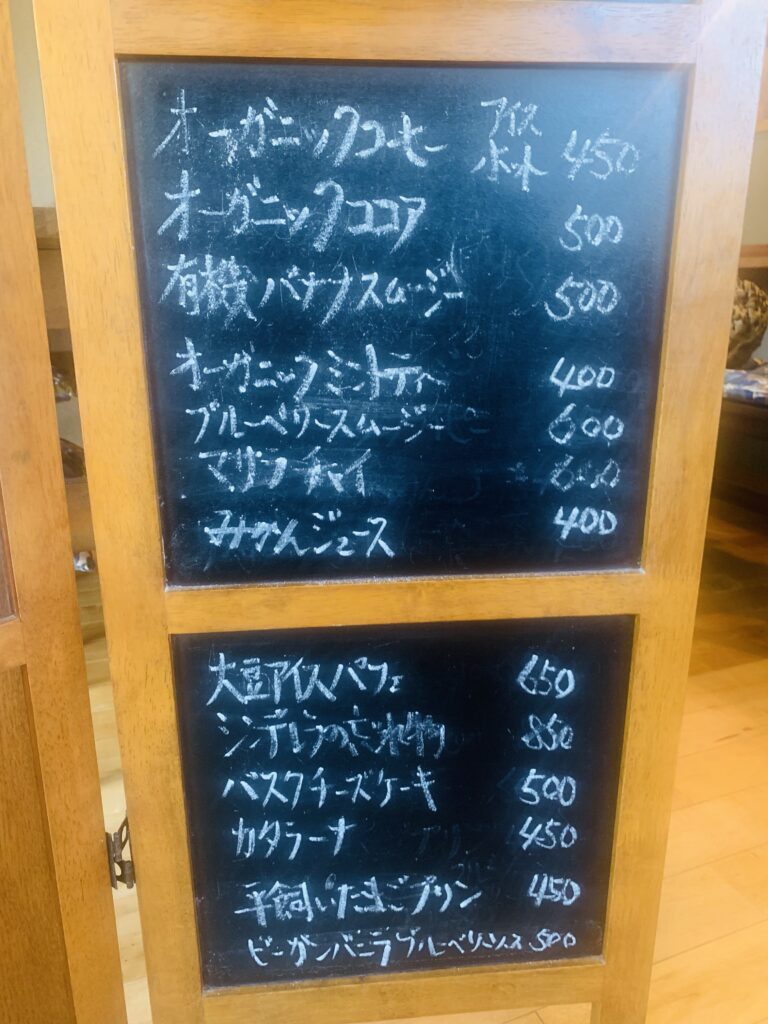 オーガニックコーヒー アイス ホット 450
オーガニックココア 500
有機バナナスムージー 500
オーガニックミントティー 400
ブルーベリースムージー 600
マサラチャイ 600
みかんジュース 400
大豆アイスパフェ 650
シンデレラの忘れ物 850
バスクチーズケーキ 500
カタラーナ 450
平飼いたまごプリン 450
ビーガンバニラブルーベリーソース 500